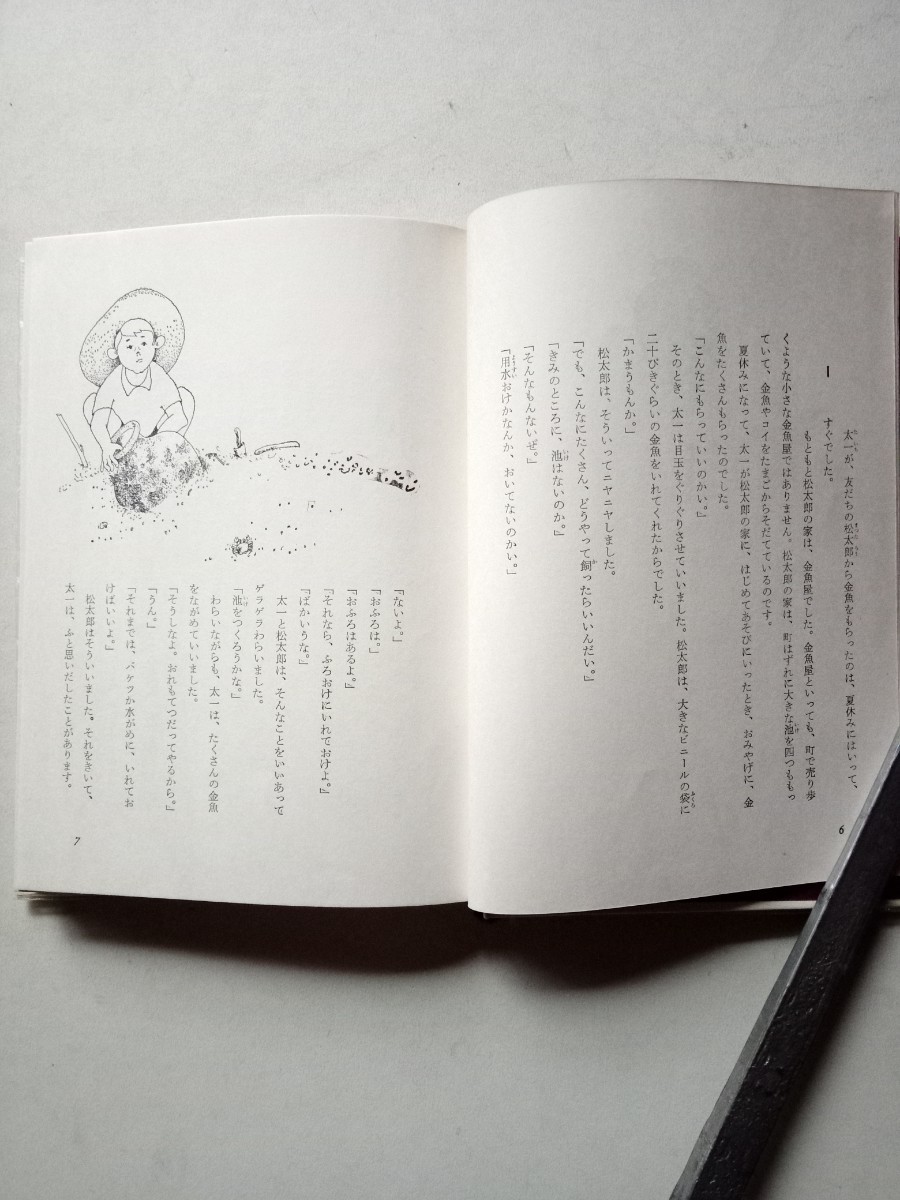 1
太一が、友だちの松太郎から金魚をもらったのは、夏休みにはいって、
すぐでした。
もともと松太郎の家は、金魚屋でした。金魚屋といっても、町で売り歩
くような小さな金魚屋ではありません。松太郎の家は、町はずれに大きな池を四つももっ
ていて、金魚やコイをたまごからそだてているのです。
夏休みになって、太一が松太郎の家に、はじめてあそびにいったとき、おみやげに、金
魚をたくさんもらったのでした。
「こんなにもらっていいのかい。」
そのとき、太一は目玉をぐりぐりさせていいました。松太郎は、大きなビニールの袋に
二十ぴきぐらいの金魚をいれてくれたからでした。
「かまうもんか。」
松太郎は、そういってニヤニヤしました。
「でも、こんなにたくさん、どうやって飼ったらいいんだい。」
「きみのところに、池はないのか。」
「そんなもんないぜ。」
「用水おけかなんか、おいてないのかい。」
6
「ないよ。」
「おふろは。」
「おふろはあるよ。」
「それなら、ふろおけにいれておけよ。」
「ばかいうな。」
太一と松太郎は、そんなことをいいあって
ゲラゲラわらいました。
「池をつくろうかな。」
わらいながらも、太一は、たくさんの金魚
をながめていいました。
「そうしなよ。おれもてつだってやるから。」
「うん。」
「それまでは、バケツか水がめに、いれてお
けばいいよ。」
松太郎はそういいました。それをきいて、
太一は、ふと思いだしたことがあります。
7